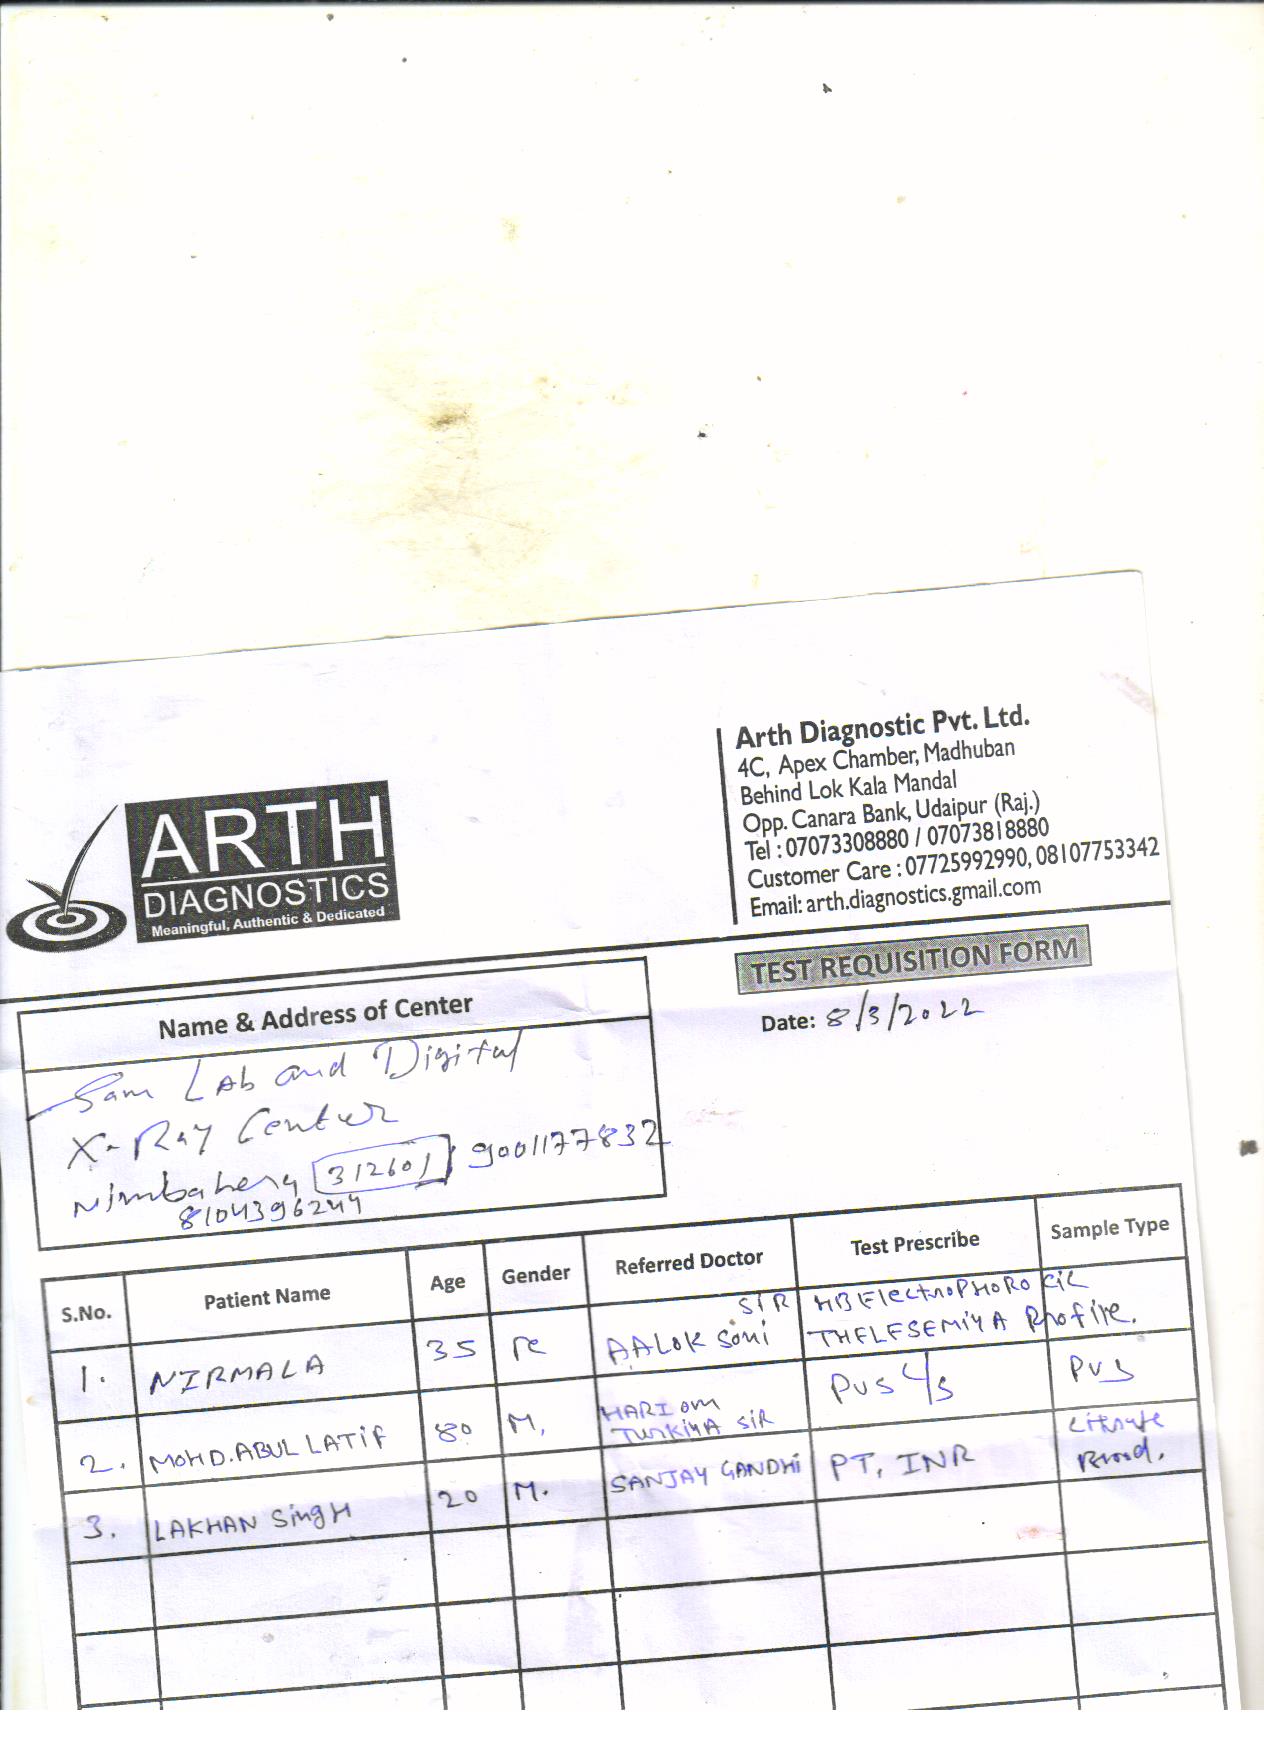 ARTH
DIAGNOSTICS
Meaningful, Authentic & Dedicated
Arth Diagnostic Pvt. Ltd.
4C, Apex Chamber, Madhuban
Behind Lok Kala Mandal
Opp. Canara Bank, Udaipur (Raj.)
Tel : 07073308880 / 07073818880
Customer Care : 07725992990, 08107753342
Email: arth.diagnostics.gmail.com
TEST REQUISITION FORM
Date: 8/3/2022
Name & Address of Center
Sam LAb and Digital
X-Ray Center
Nimbahera 312601 9001177832
8104396244
S.No. Patient Name Age Gender Referred Doctor Test Prescribe Sample Type
1. NIRMALA 35 AALOK Soni SIR HBElectroPHORO
THELESEMIYA Profire.
2. MOHD. ABUL LATIF 80 M. HARI om
TUNKIYA SIR Pus Pus
3. LAKHAN SINGH 20 M. SANJAY GANDHI PT, INR